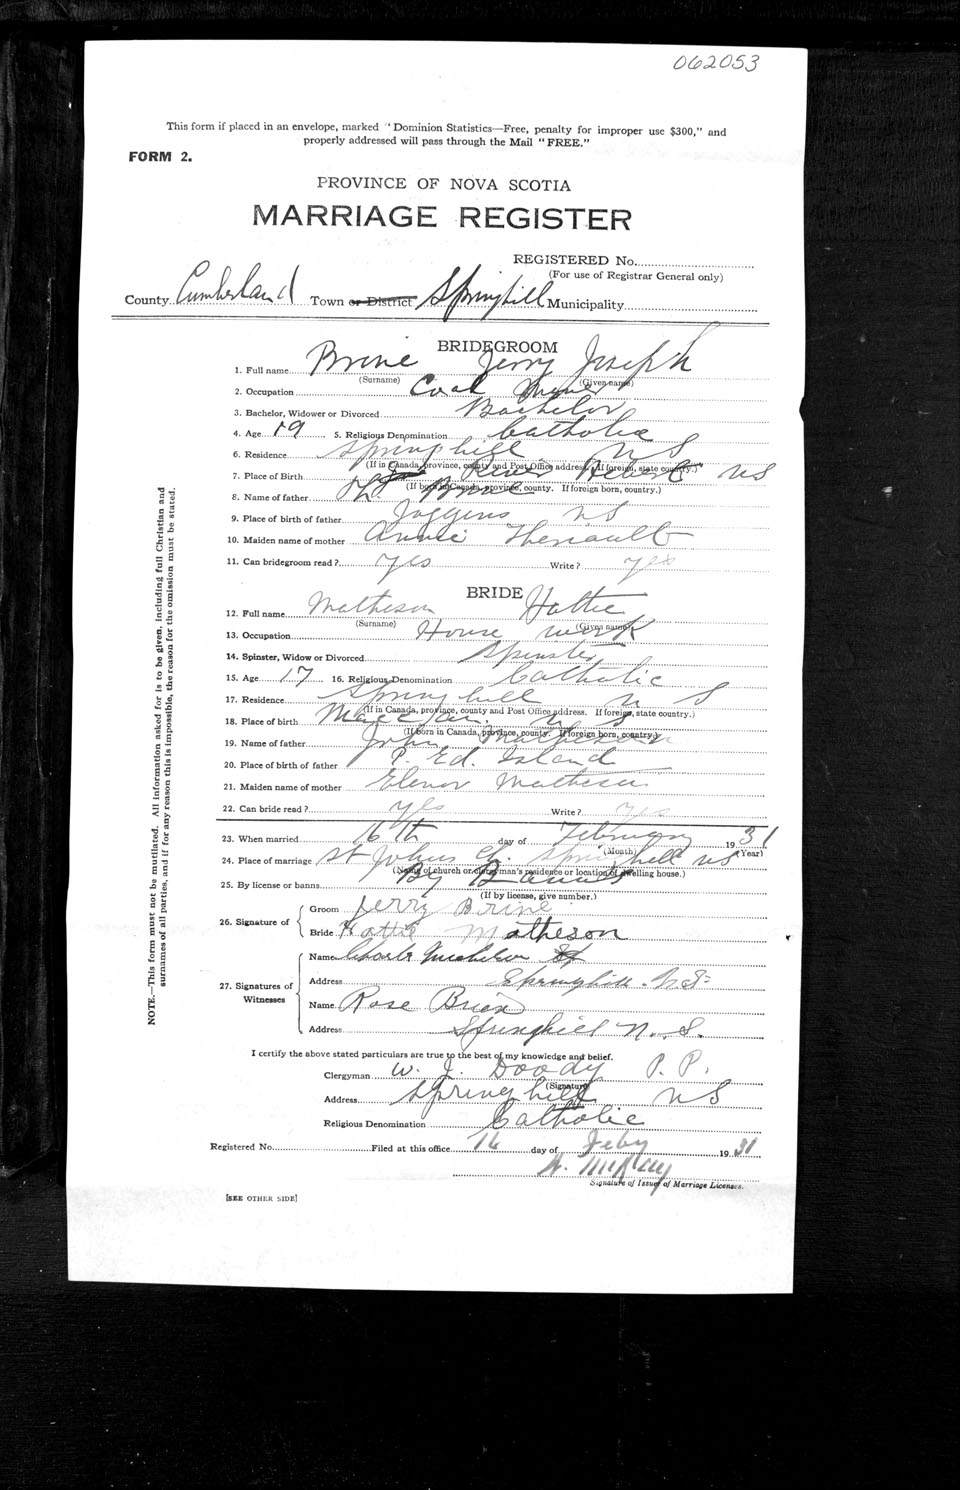 062053
This form if placed in an envelope, marked "Dominion Statistics—Free, penalty for improper use $300," and
properly addressed will pass through the Mail "FREE."
FORM 2.
PROVINCE OF NOVA SCOTIA
MARRIAGE REGISTER
REGISTERED No.
(For use of Registrar General only)
County Cumberland Town or District Springhill Municipality
BRIDEGROOM
1. Full name Brine Jerry Joseph
(Surname) (Given name)
2. Occupation Coal Mine
3. Bachelor, Widower or Divorced Bachelor
4. Age 19 5. Religious Denomination Catholic
6. Residence Springhill N S
(If in Canada, province, county and Post Office address. If foreign, state country.)
7. Place of Birth River Hebert NS
(If born in Canada, province, county. If foreign born, country.)
8. Name of father Brine
9. Place of birth of father Joggins NS
10. Maiden name of mother Annie Theriault
11. Can bridegroom read? Yes Write? yes
BRIDE
12. Full name Matheson Hattie
(Surname) (Given name)
13. Occupation House work
14. Spinster, Widow or Divorced Spinster
15. Age 17 16. Religious Denomination Catholic
17. Residence Springhill N S
(If in Canada, province, county and Post Office address. If foreign, state country.)
18. Place of birth Maccan. N S
(If born in Canada, province, county. If foreign born, country.)
19. Name of father John Matheson
20. Place of birth of father P. Ed. Island
21. Maiden name of mother Elenor Matheson
22. Can bride read? yes Write? Yes
23. When married 16th day of February 1931
(Month) (Year)
24. Place of marriage St Johns Ch. Springhill NS
(Name of church or clergyman's residence or location of dwelling house.)
25. By license or banns By Banns
(If by license, give number.)
26. Signature of
Groom Jerry Brine
Bride Hattie Matheson
27. Signatures of Witnesses
Name Charles
Address Springhill N.S.
Name Rose Brine
Address Springhill N. S.
I certify the above stated particulars are true to the best of my knowledge and belief.
Clergyman W. J. Doody P. P.
(Signature)
Address Springhill NS
Religious Denomination Catholic
Registered No. Filed at this office 16 day of Feby 1931
Signature of Issuer of Marriage Licenses.
[SEE OTHER SIDE]
NOTE.—This form must not be mutilated. All information asked for is to be given, including full Christian and
surnames of all parties, and if for any reason this is impossible, the reason for the omission must be stated.